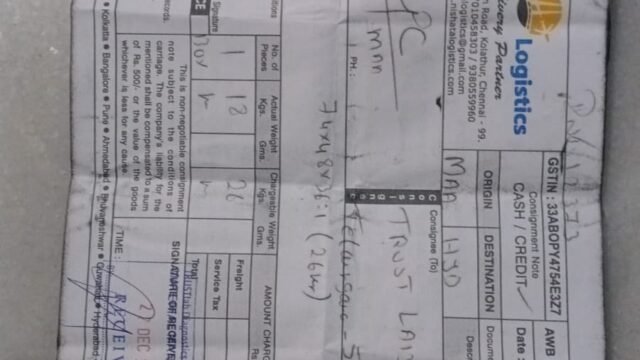 ivery Partner
Logistics
n Road, Kolathur, Chennai - 99.
7010458303 / 9380559960
logistics@gmail.com
.nishatalogistics.com
GSTIN : 33ABOPY4754E3Z7
Consignment Note
CASH / CREDIT
AWB
Date :
ORIGIN
DESTINATION
MAA
HYD
Docum
Descri
PC
MAA
PH. :
Consignee (To)
TRUST LA
Telangana - 5
74x48x36:1 (26kg)
No. of
Pieces
Actual Weight
Kgs.
Gms.
Chargeable Weight
Kgs.
Gms.
AMOUNT CHAR
Rs
1
18
26
Freight
BOX
Service Tax
Total
Signature
This is non-negotiable consignment
note subject to the conditions of
carriage. The company's liability for the
mentioned shall be compensated to a sum
of Rs. 500/- or the value of the goods
whichever is less for any cause.
SIGNATURE OF RECEIVE
TRUSTlab Diagnostics
TIME :
DEC
Kolkatta ● Bangalore ● Pune ● Ahmadabad ● Bhuvaneshwar ● Guwahati ● Hyderabad